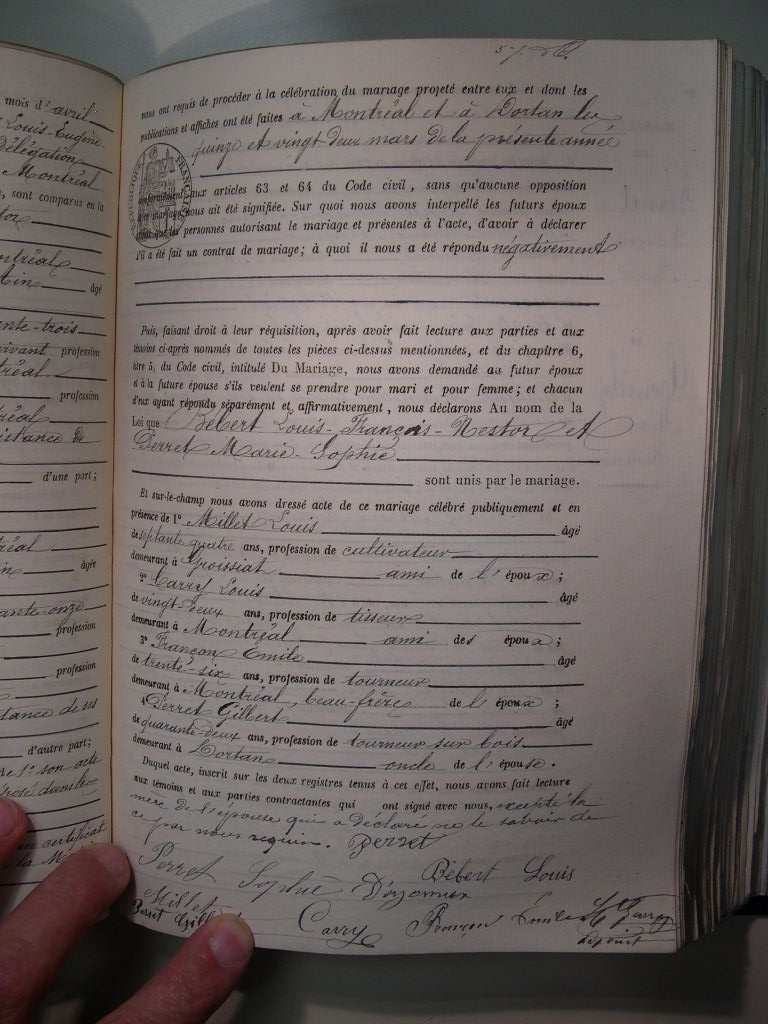 mois d'avril
Louis-Eugène
délégation
Montréal
, sont comparus en la
âgé
ente-trois
vivant profession
profession
d'une part;
âgée
ante-onze
profession
profession
d'autre part;
nous ont requis de procéder à la célébration du mariage projeté entre eux et dont les
publications et affiches ont été faites à Montréal et à Dortan les
quinze et vingt deux mars de la présente année
conformément aux articles 63 et 64 du Code civil, sans qu'aucune opposition
mariage nous ait été signifiée. Sur quoi nous avons interpellé les futurs époux
que les personnes autorisant le mariage et présentes à l'acte, d'avoir à déclarer
s'il a été fait un contrat de mariage; à quoi il nous a été répondu négativement
Puis, faisant droit à leur réquisition, après avoir fait lecture aux parties et aux
témoins ci-après nommés de toutes les pièces ci-dessus mentionnées, et du chapitre 6,
titre 5, du Code civil, intitulé Du Mariage, nous avons demandé au futur époux
et à la future épouse s'ils veulent se prendre pour mari et pour femme; et chacun
d'eux ayant répondu séparément et affirmativement, nous déclarons Au nom de la
Loi que Bébert Louis-François-Nestor et
Perret Marie-Sophie
sont unis par le mariage.
Et sur-le-champ nous avons dressé acte de ce mariage célébré publiquement et en
présence de 1° Millet Louis âgé
de septante quatre ans, profession de cultivateur
demeurant à Groissiat ami de l'époux;
2° Carry Louis âgé
de vingt-deux ans, profession de tisseur
demeurant à Montréal ami des époux;
3° Françon Emile âgé
de trente-six ans, profession de tourneur
demeurant à Montréal, beau-frère de l'époux;
4° Perret Gilbert âgé
de quarante-deux ans, profession de tourneur sur bois
demeurant à Dortan oncle de l'épouse.
Duquel acte, inscrit sur les deux registres tenus à cet effet, nous avons fait lecture
aux témoins et aux parties contractantes qui ont signé avec nous, excepté la
mère de l'épouse qui a déclaré ne le savoir de
ce par nous requise. Perret
Perret Sophie Bébert Louis
Millet
Perret Carry Françon